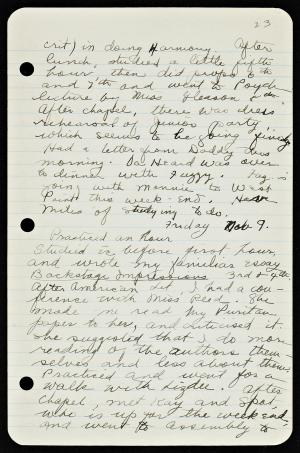 23
crit) in doing Harmony. After
lunch, studied a little fifth
hour, then did props 6th
and 7th and went to Psych
lecture by Miss Gleason
After chapel, there was dress
rehearsal of Junior party
which seems to be going
Had a letter from Daddy this
morning. Da Heard was over
to dinner with Fuzzy. Fag is
going with Monnie to West
Point this week-end. Have
miles of studying to do.
Friday Nov 9.
Practiced an hour
Studied before first hour
and wrote my familiar essay
Backstage Impressions 3rd & 4th
After American Lit, I had a con-
ference with Miss Reed. She
made me read my Puritan
paper to her, and criticised it.
She suggested that I do more
reading of the authors them-
selves and less about them.
Practiced and went for a
walk with Lizdee. After
chapel, met Kay and Spot,
who is up for the week end,
and went to assembly to